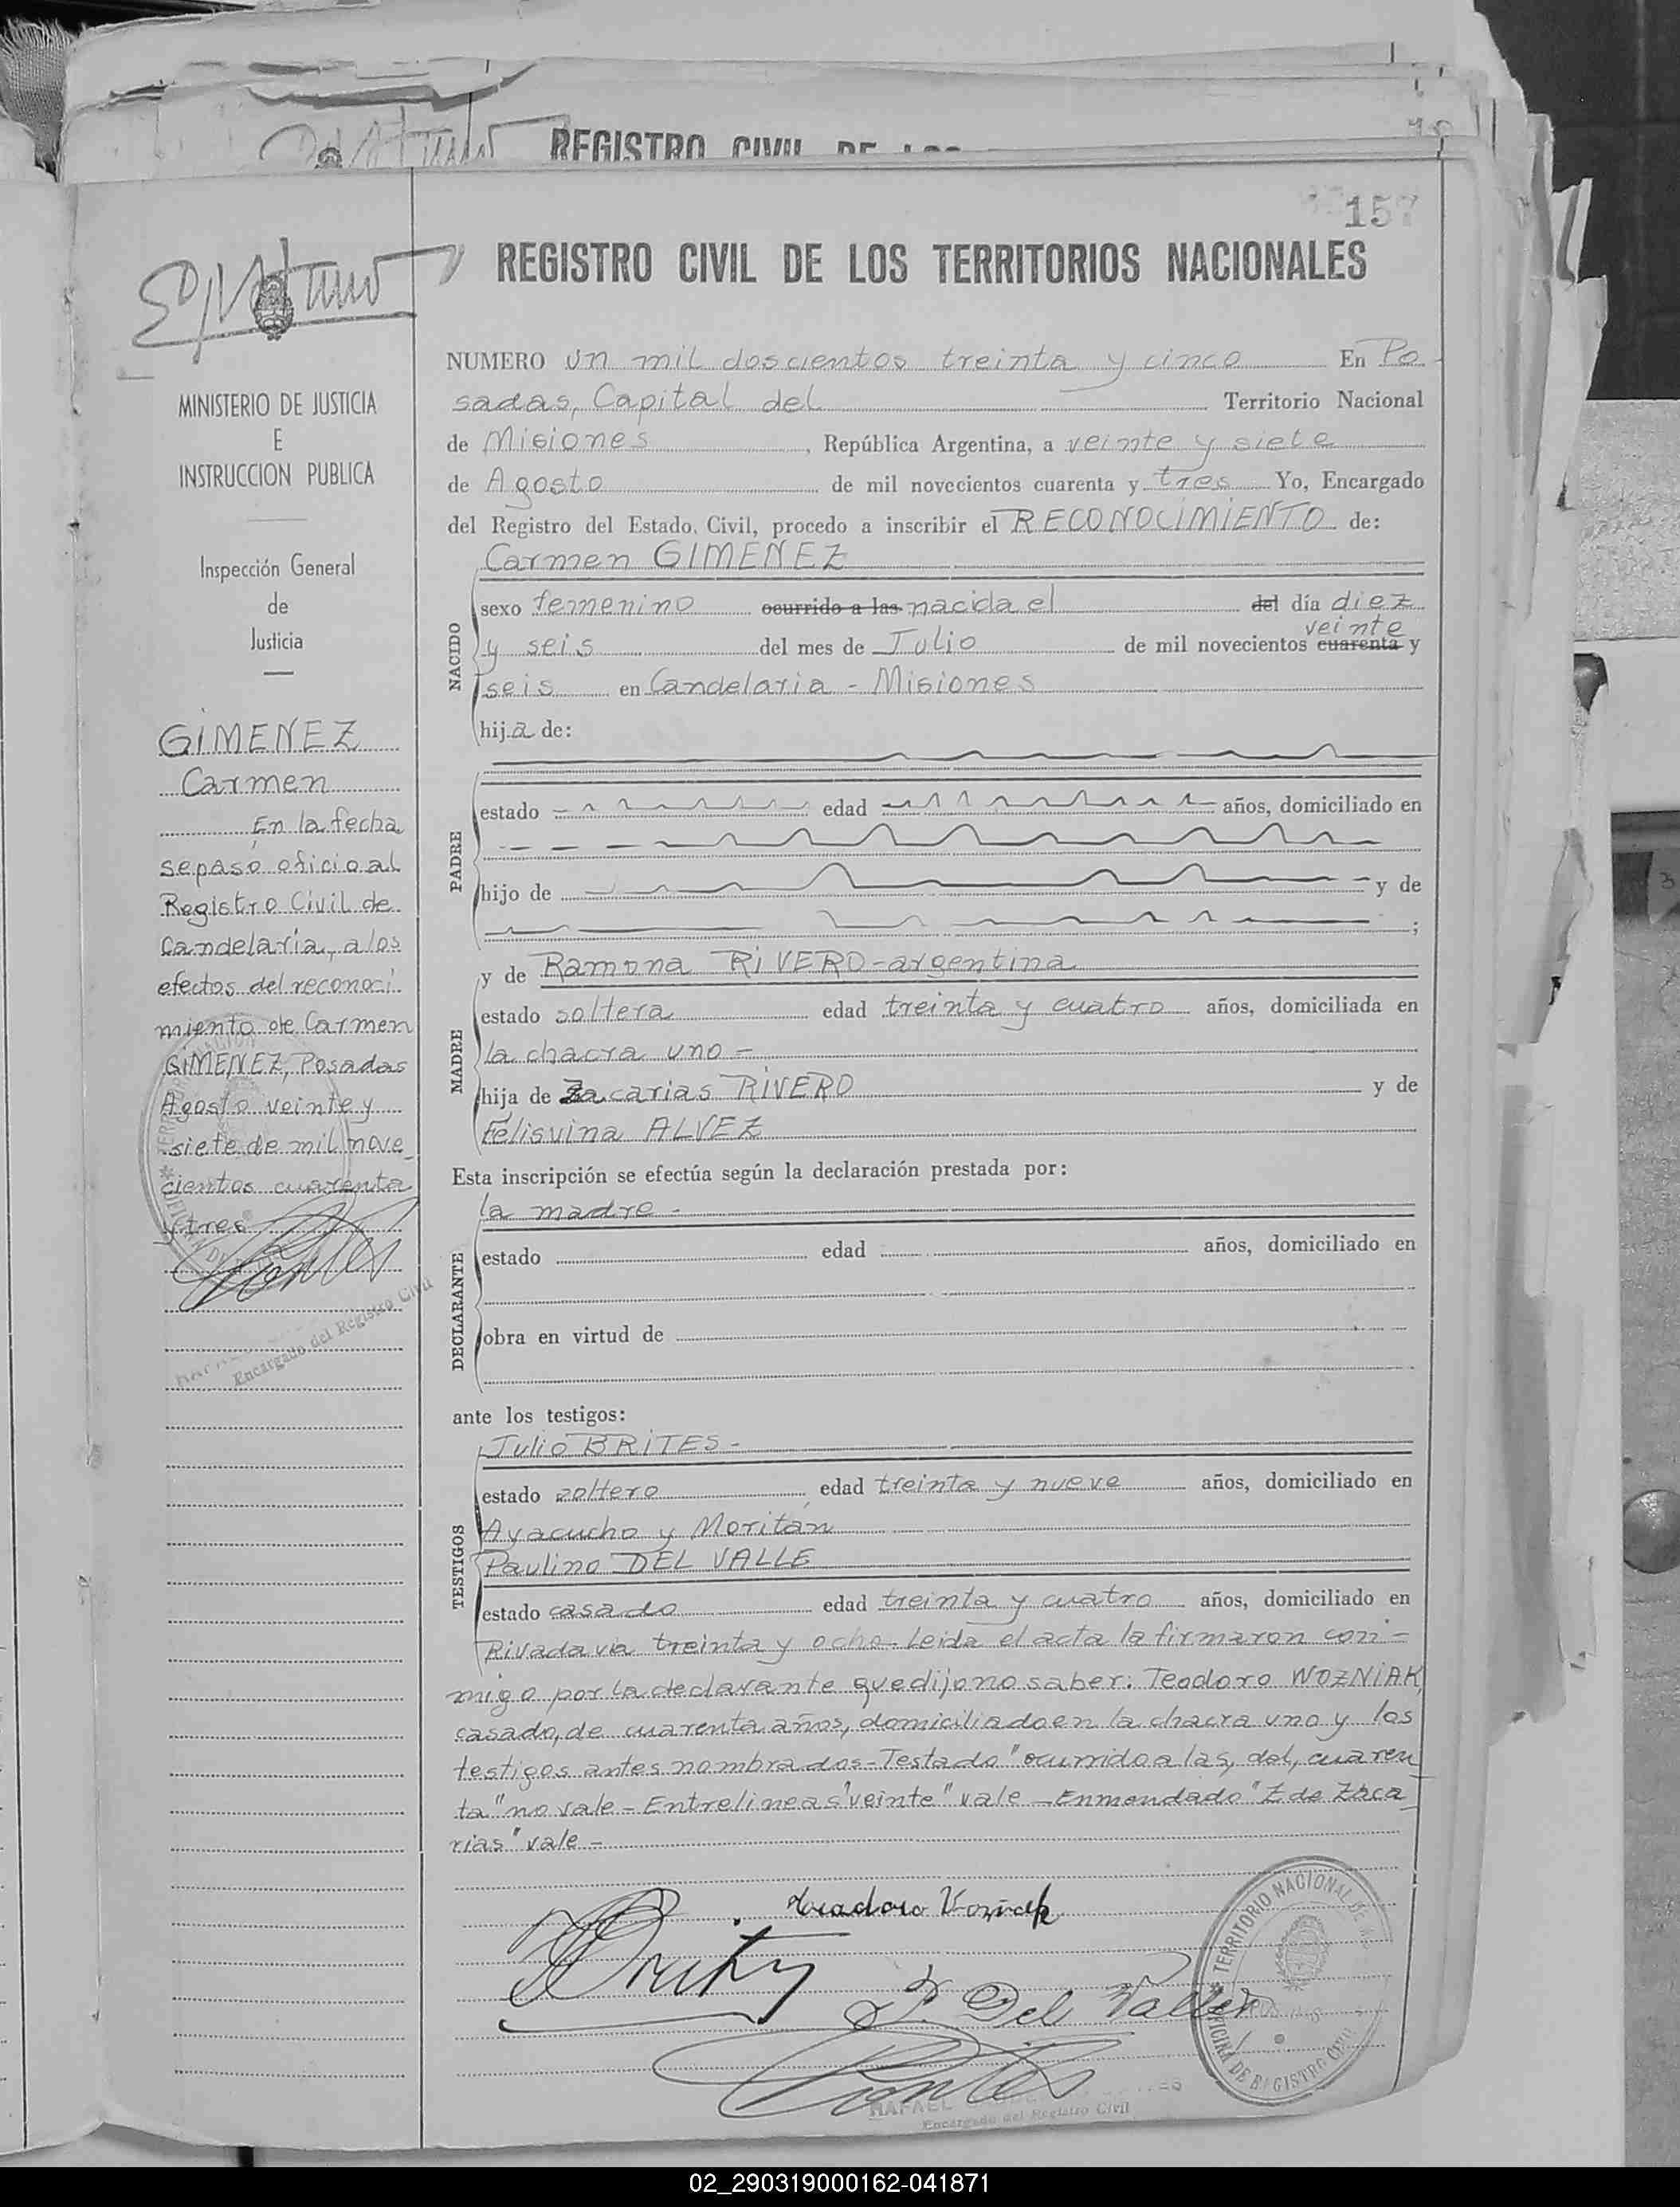 REGISTRO CIVIL DE LOS
157
REGISTRO CIVIL DE LOS TERRITORIOS NACIONALES
MINISTERIO DE JUSTICIA
E
INSTRUCCION PUBLICA
Inspección General
de
Justicia
GIMENEZ
Carmen
En la fecha
se pasó oficio al
Registro Civil de
Candelaria, a los
efectos del reconoci
miento de Carmen
GIMENEZ, Posadas
Agosto veinte y
siete de mil nove
cientos cuarenta
y tres
Encargado del Registro Civil
NUMERO un mil doscientos treinta y cinco En Po
sadas, Capital del Territorio Nacional
de Misiones, República Argentina, a veinte y siete
de Agosto de mil novecientos cuarenta y tres Yo, Encargado
del Registro del Estado Civil, procedo a inscribir el RECONOCIMIENTO de:
NACIDO
Carmen GIMENEZ
sexo femenino ocurrido a las nacida el del día diez
veinte
y seis del mes de Julio de mil novecientos cuarenta y
seis en Candelaria - Misiones
hija de:
PADRE
estado edad años, domiciliado en
hijo de y de
;
MADRE
y de Ramona RIVERO - argentina
estado soltera edad treinta y cuatro años, domiciliada en
la chacra uno -
hija de Zacarias RIVERO y de
Felisvina ALVEZ
Esta inscripción se efectúa según la declaración prestada por:
DECLARANTE
la madre -
estado edad años, domiciliado en
obra en virtud de
ante los testigos:
TESTIGOS
Julio BRITES -
estado zoltero edad treinta y nueve años, domiciliado en
Ayacucho y Moritan
Paulino DEL VALLE
estado casado edad treinta y cuatro años, domiciliado en
Rivadavia treinta y ocho. Leida el acta la firmaron con -
migo por la declarante que dijo no saber: Teodoro WOZNIAK,
casado, de cuarenta años, domiciliado en la chacra uno y los
testigos antes nombrados - Testado "ocurrido a las, del, cuaren
ta" no vale - Entrelineas "veinte" vale - Enmendado "Z de Zaca
rias" vale -
P. Del Valle
TERRITORIO NACIONAL DE
OFICINA DE REGISTRO CIVIL
RAFAEL
Encargado del Registro Civil
02_290319000162-041871